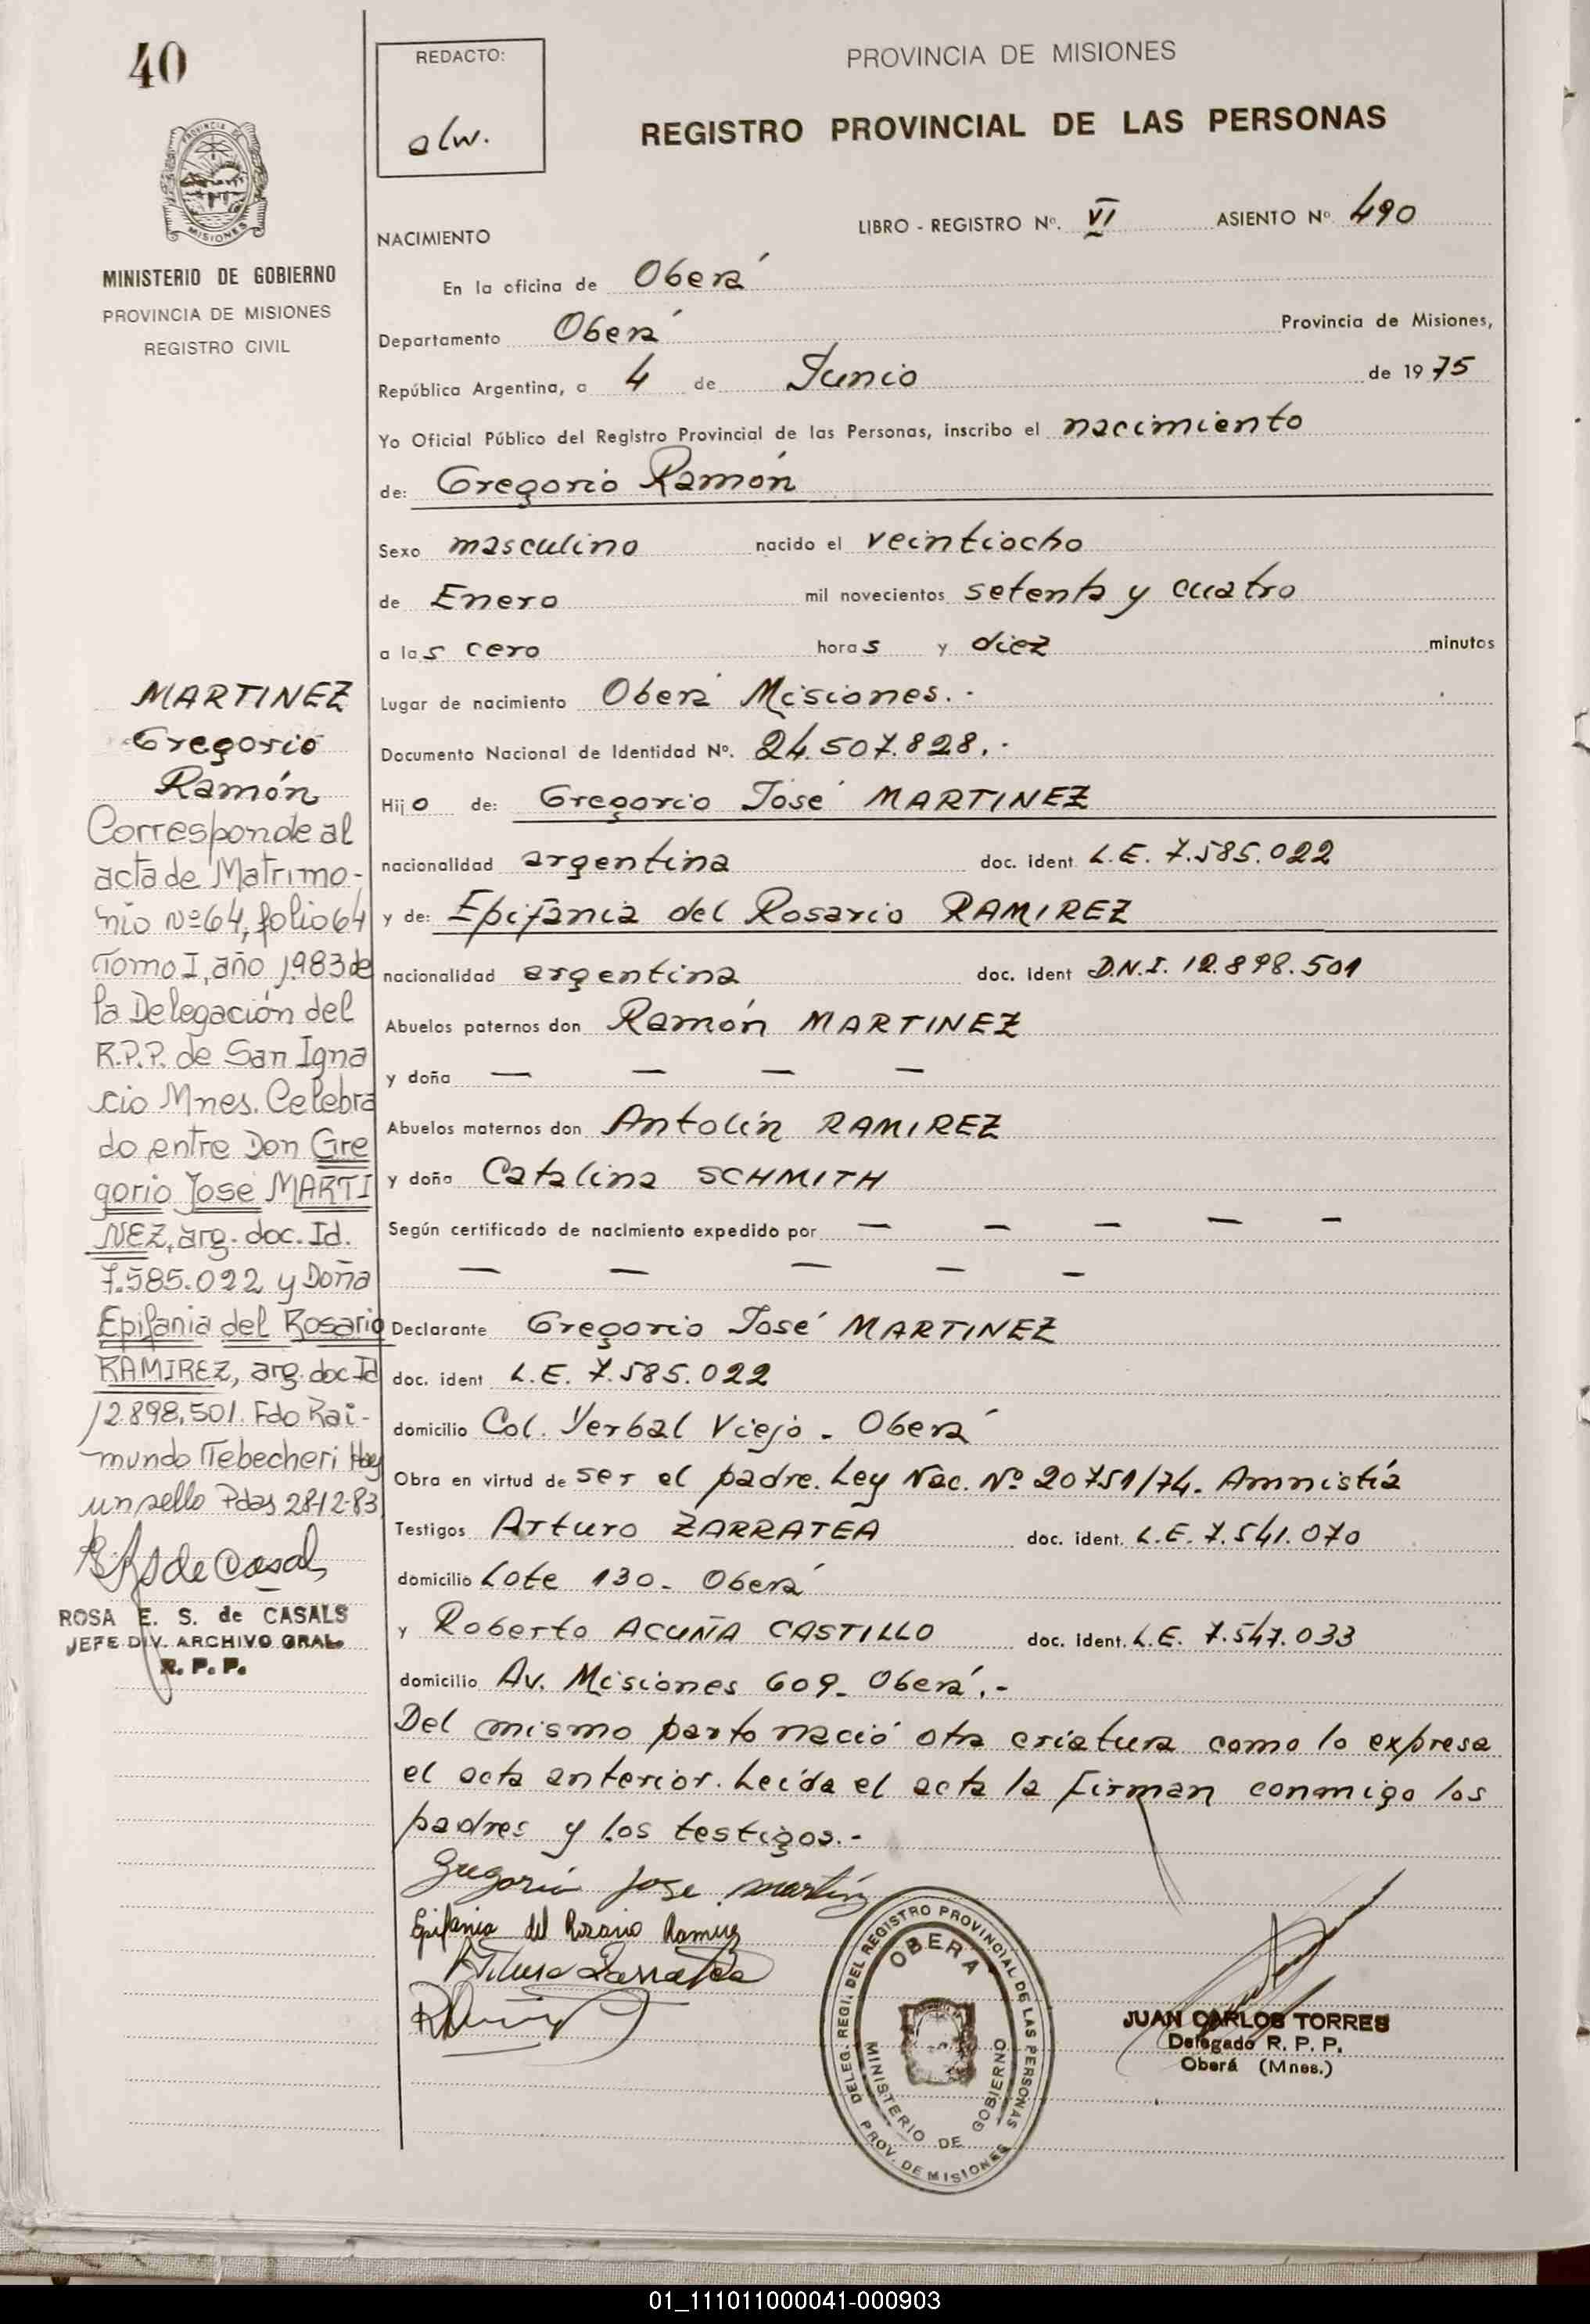 40
REDACTO:
alw.
PROVINCIA DE MISIONES
REGISTRO PROVINCIAL DE LAS PERSONAS
PROVINCIA DE
MISIONES
MINISTERIO DE GOBIERNO
PROVINCIA DE MISIONES
REGISTRO CIVIL
NACIMIENTO
LIBRO - REGISTRO Nº. VI ASIENTO Nº 490
En la oficina de Oberá
Departamento Oberá Provincia de Misiones,
República Argentina, a 4 de Junio de 1975
Yo Oficial Público del Registro Provincial de las Personas, inscribo el nacimiento
de: Gregorio Ramón
Sexo masculino nacido el veintiocho
de Enero mil novecientos setenta y cuatro
a las cero horas y diez minutos
Lugar de nacimiento Oberá Misiones.-
Documento Nacional de Identidad Nº. 24.507.828.-
Hijo de: Gregorio José MARTINEZ
nacionalidad argentina doc. ident. L.E. 7.585.022
y de: Epifania del Rosario RAMIREZ
nacionalidad argentina doc. ident D.N.I. 12.898.501
Abuelos paternos don Ramón MARTINEZ
y doña — — — —
Abuelos maternos don Antolín RAMIREZ
y doña Catalina SCHMITH
Según certificado de nacimiento expedido por — — — — —
— — — — —
Declarante Gregorio José MARTINEZ
doc. ident L.E. 7.585.022
domicilio Col. Yerbal Viejo - Oberá
Obra en virtud de ser el padre. Ley Nac. Nº 20751/74. Amnistía
Testigos Arturo ZARRATEA doc. ident. L.E. 7.541.070
domicilio Lote 130- Oberá
y Roberto ACUÑA CASTILLO doc. ident. L.E. 7.547.033
domicilio Av. Misiones 609- Oberá.-
Del mismo parto nació otra criatura como lo expresa
el acta anterior. Leída el acta la firman conmigo los
padres y los testigos.-
Gregorio jose martinz
Epifania del Rosario Ramirez
Arturo Zarratea
MARTINEZ
Gregorio
Ramón
Corresponde al
acta de Matrimo-
nio Nº 64, folio 64
Tomo I, año 1983 de
la Delegación del
R.P.P. de San Igna
cio Mnes. Celebra
do entre Don Gre
gorio José MARTI
NEZ, arg. doc. Id.
7.585.022 y Doña
Epifania del Rosario
RAMIREZ, arg. doc Id
12.898.501. Fdo Rai-
mundo Tebecheri Hay
un sello Pdas 28-12-83
ROSA E. S. de CASALS
JEFE DIV. ARCHIVO GRAL.
R. P. P.
DELEG. REGI. DEL REGISTRO PROVINCIAL DE LAS PERSONAS
OBERA
MINISTERIO DE GOBIERNO
PROV. DE MISIONES
JUAN CARLOS TORRES
Delegado R. P. P.
Oberá (Mnes.)
01_111011000041-000903